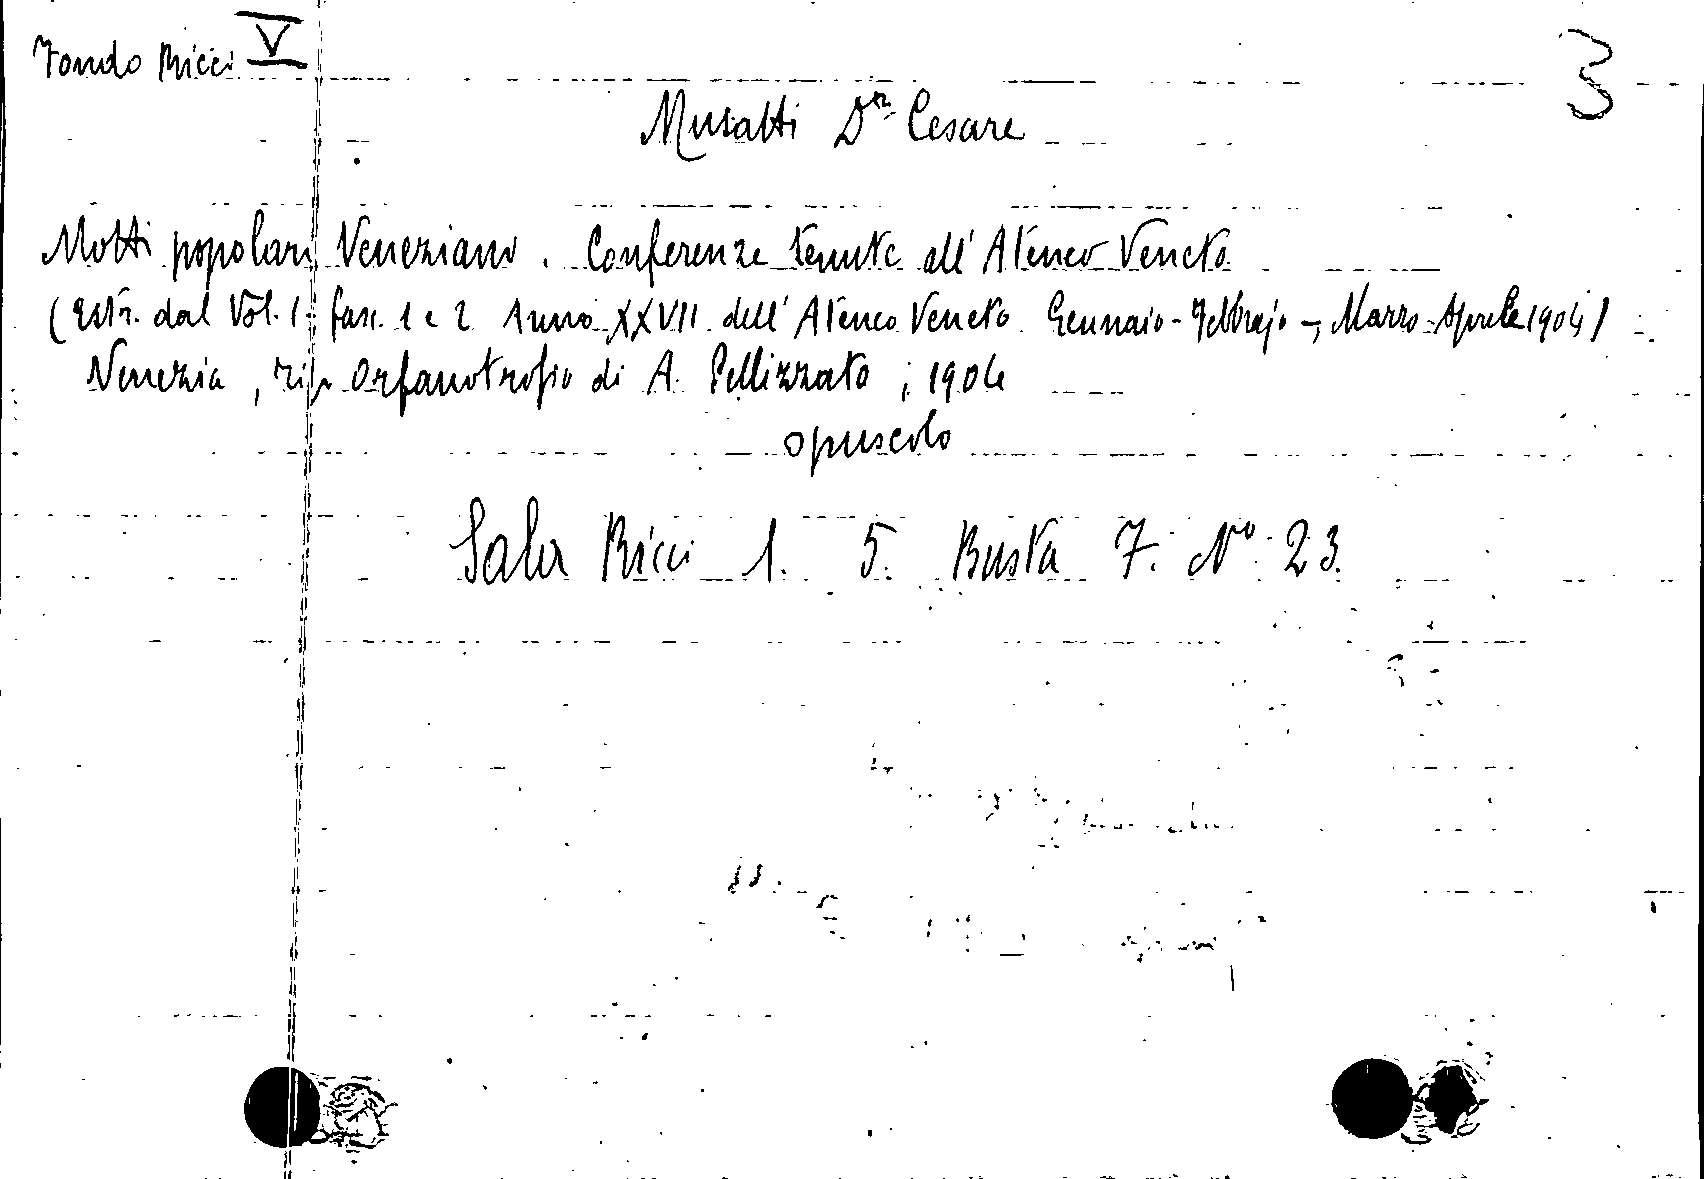 Fondo Ricci V
3
Musatti Dr. Cesare
Motti popolari Veneziano. Conferenze tenute all'Ateneo Veneto
(Estr. dal Vol. I - fasc. 1 e 2 Anno XXVII dell'Ateneo Veneto Gennaio-Febbrajo -, Marzo-Aprile 1904)
Venezia, tip Orfanotrofio di A. Pellizzato, 1904
opuscolo
Sala Ricci 1. 5. Busta 7. No 23.